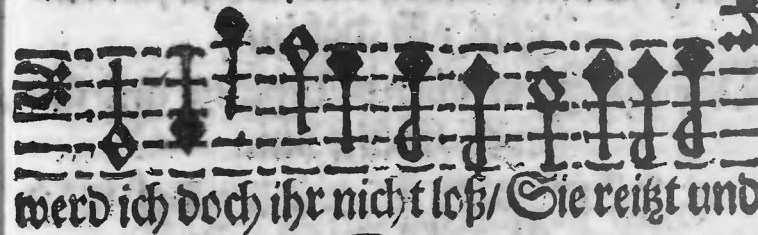 werd ich doch ihr nicht loß/ Sie reitzt und